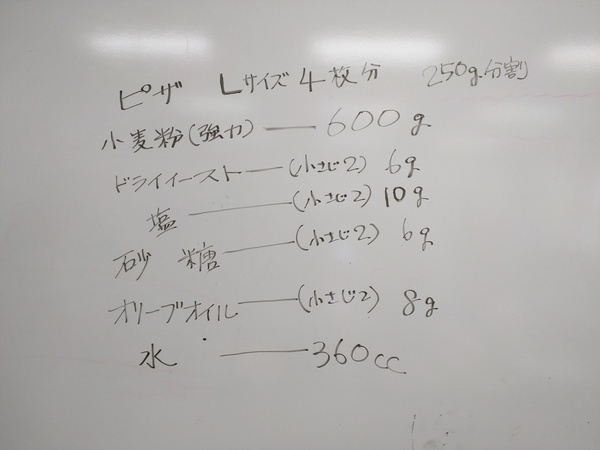 ピザ Lサイズ 4枚分 250g.分割
小麦粉(強力) — 600g
ドライイースト — (小さじ2) 6g
塩 — (小さじ2) 10g
砂糖 — (小さじ2) 6g
オリーブオイル — (小さじ2) 8g
水 — 360cc